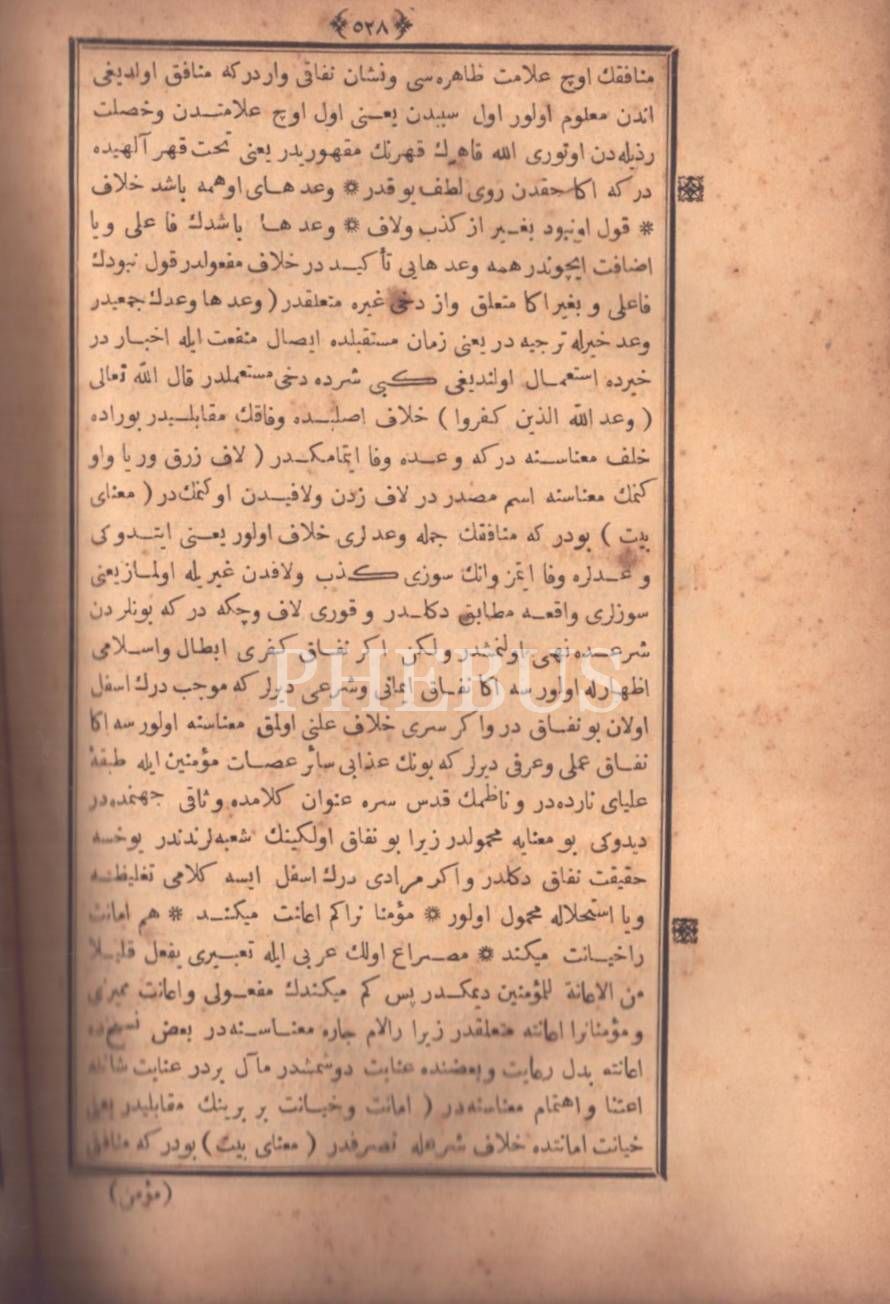 ٥٢٨
منافقك اوچ علامت ظاهره سی ونشان نفاقی واردرکه منافق اولدیغی
اندن معلوم اولور اول سببدن یعنی اول اوچ علامتدن وخصلت
رذیله دن اوتوری الله قاهرك قهرنك مقهوریدر یعنی تحت قهر آلهیده
درکه اکا حقدن روی لطف یوقدر * وعدهای اوهمه باشد خلاف
* قول اونبود بغیر از کذب ولاف * وعدها باشدك فاعلی ویا
اضافت ایچوندر همه وعدهایی تأکید در خلاف مفعولدر قول نبودك
فاعلی و بغیر اکا متعلق واز دخی غیره متعلقدر ( وعدها وعدك جمعیدر
وعد خیرله ترجیه در یعنی زمان مستقبلده ایصال منفعت ایله اخبار در
خیرده استعمال اولندیغی کبی شرده دخی مستعملدر قال الله تعالی
( وعد الله الذین کفروا ) خلاف اصلده وفاقك مقابلیدر بوراده
خلف معناسنه درکه وعده وفا ایتمامکدر ( لاف زرق وریا واو
کنمك معناسنه اسم مصدر در لاف زدن ولافیدن اوکنمك در ( معنای
بیت ) بودر که منافقك جمله وعدلری خلاف اولور یعنی ایتدوکی
وعدلره وفا ایتمز وانك سوزی کذب ولافدن غیریله اولماز یعنی
سوزلری واقعه مطابق دکلدر و قوری لاف وچکه درکه بونلردن
شرعده نهی اولنمشدر ولکن اکر نفاق کفری ابطال واسلامی
اظهارله اولور سه اکا نفاق ایمانی وشرعی دیرلر که موجب درك اسفل
اولان بو نفاق در واکر سری خلاف علنی اولمق معناسنه اولور سه اکا
نفاق عملی وعرفی دیرلر که بونك عذابی سائر عصات مؤمنین ایله طبقۀ
علیای نارده در و ناظمك قدس سره عنوان کلامده وثاقی جهنمده در
دیدوکی بو معنایه محمولدر زیرا بو نفاق اولکینك شعبه لرندندر یوخسه
حقیقت نفاق دکلدر واکر مرادی درك اسفل ایسه کلامی تغلیظه
ویا استحلاله محمول اولور * مؤمنا نراکم اعانت میکند * هم امانت
راخیانت میکند * مصراع اولك عربی ایله تعبیری یفعل قلیلا
من الاعانة للمؤمنین دیمکدر پس کم میکندك مفعولی واعانت ممیزی
ومؤمنانرا اعانته متعلقدر زیرا رالام جاره معناسنه در بعض نسخه ده
اعانته بدل رعایت وبعضنده عنایت دوشمشدر مآل بردر عنایت شانله
اعتنا و اهتمام معناسنه در ( امانت وخیانت بر برینك مقابلیدر یعنی
خیانت امانتده خلاف شرعله تصرفدر ( معنای بیت ) بودر که منافق
(مؤمن)
PHEBUS